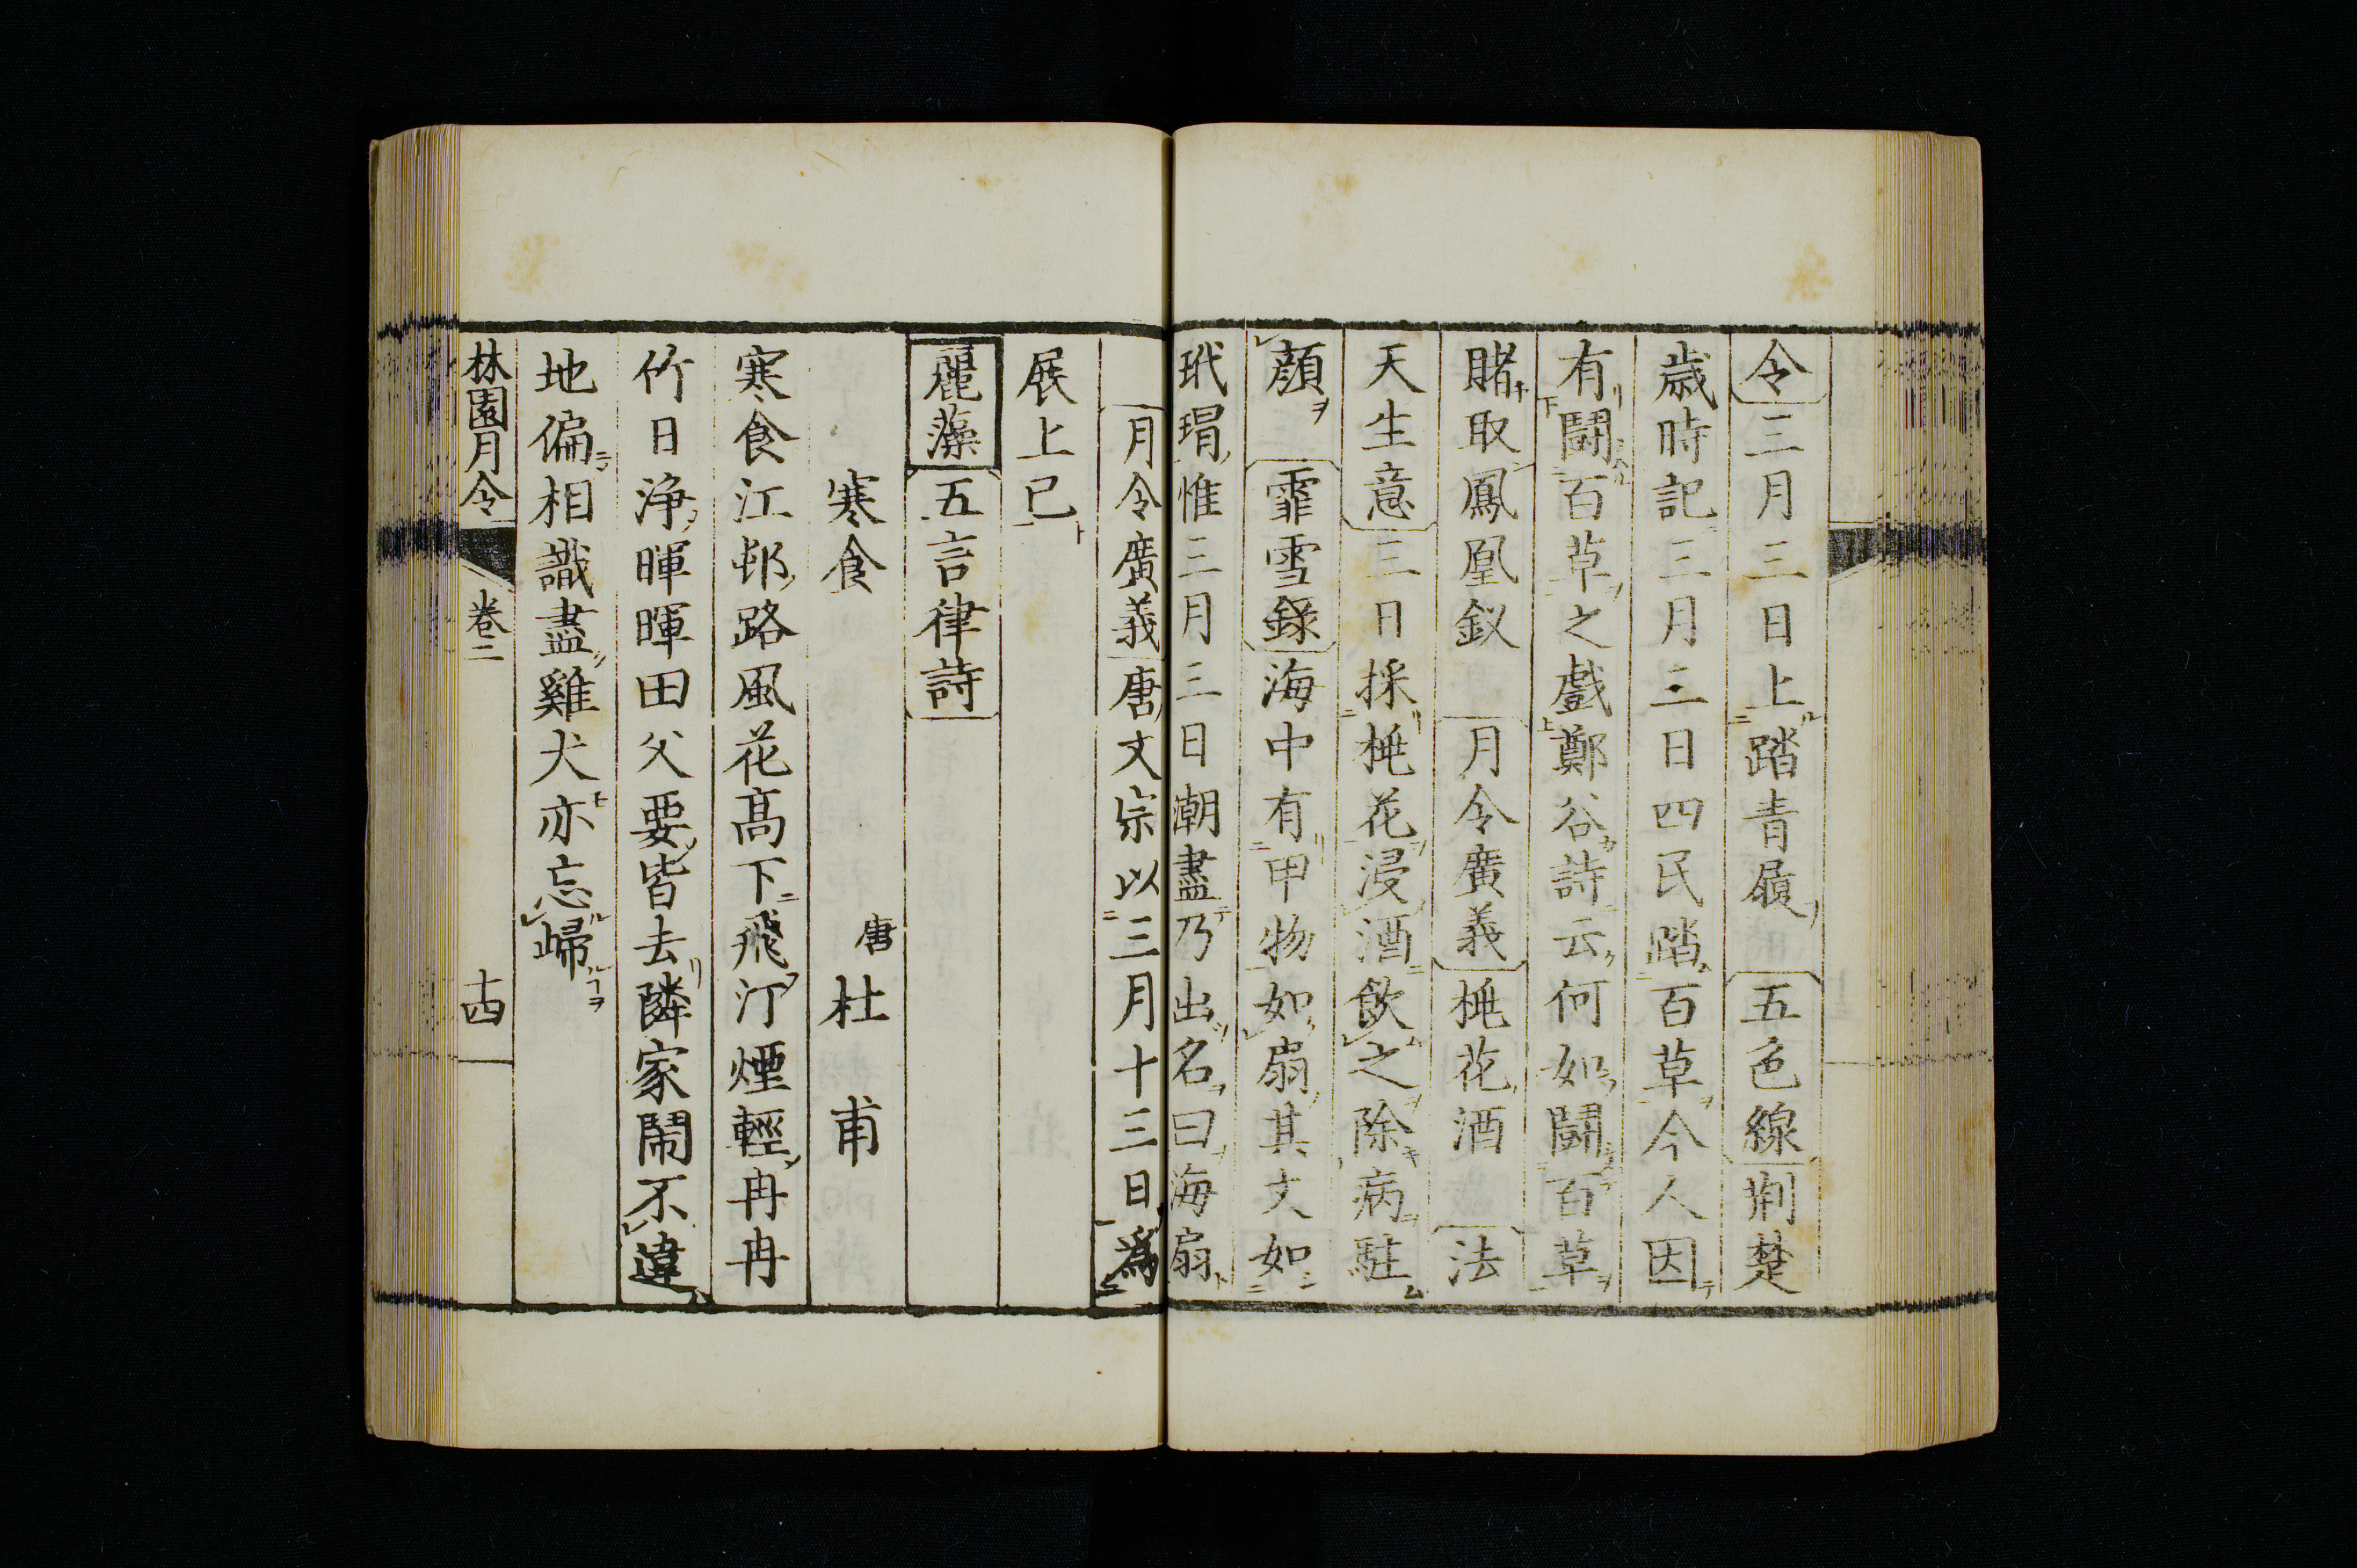 令三月三日上踏青履五色線荆楚
歳時記三月三日四民踏百草今人因
有鬪百草之戯鄭谷詩云何如鬪百草
賭取鳳凰釵月令廣義桃花酒法
天生意三日採桃花浸酒飲之除病駐
顔霏雪録海中有甲物如扇其文如
玳瑁惟三月三日潮盡乃出名曰海扇
月令廣義唐文宗以三月十三日為
展上巳
麗藻五言律詩
寒食唐杜甫
寒食江邨路風花髙下飛汀煙輕冉冉
竹日浄暉暉田父要皆去隣家閙不違
地偏相識盡雞犬亦忘歸
林園月令卷二十四